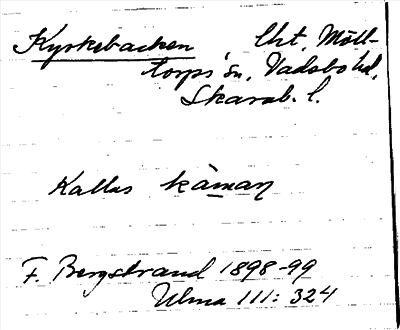 Kyrkebacken lht, Möll-
torps sn, Vadsbo hd,
Skarab. l.
Kallas kåman
F. Bergstrand 1898-99
Ulma 111: 324